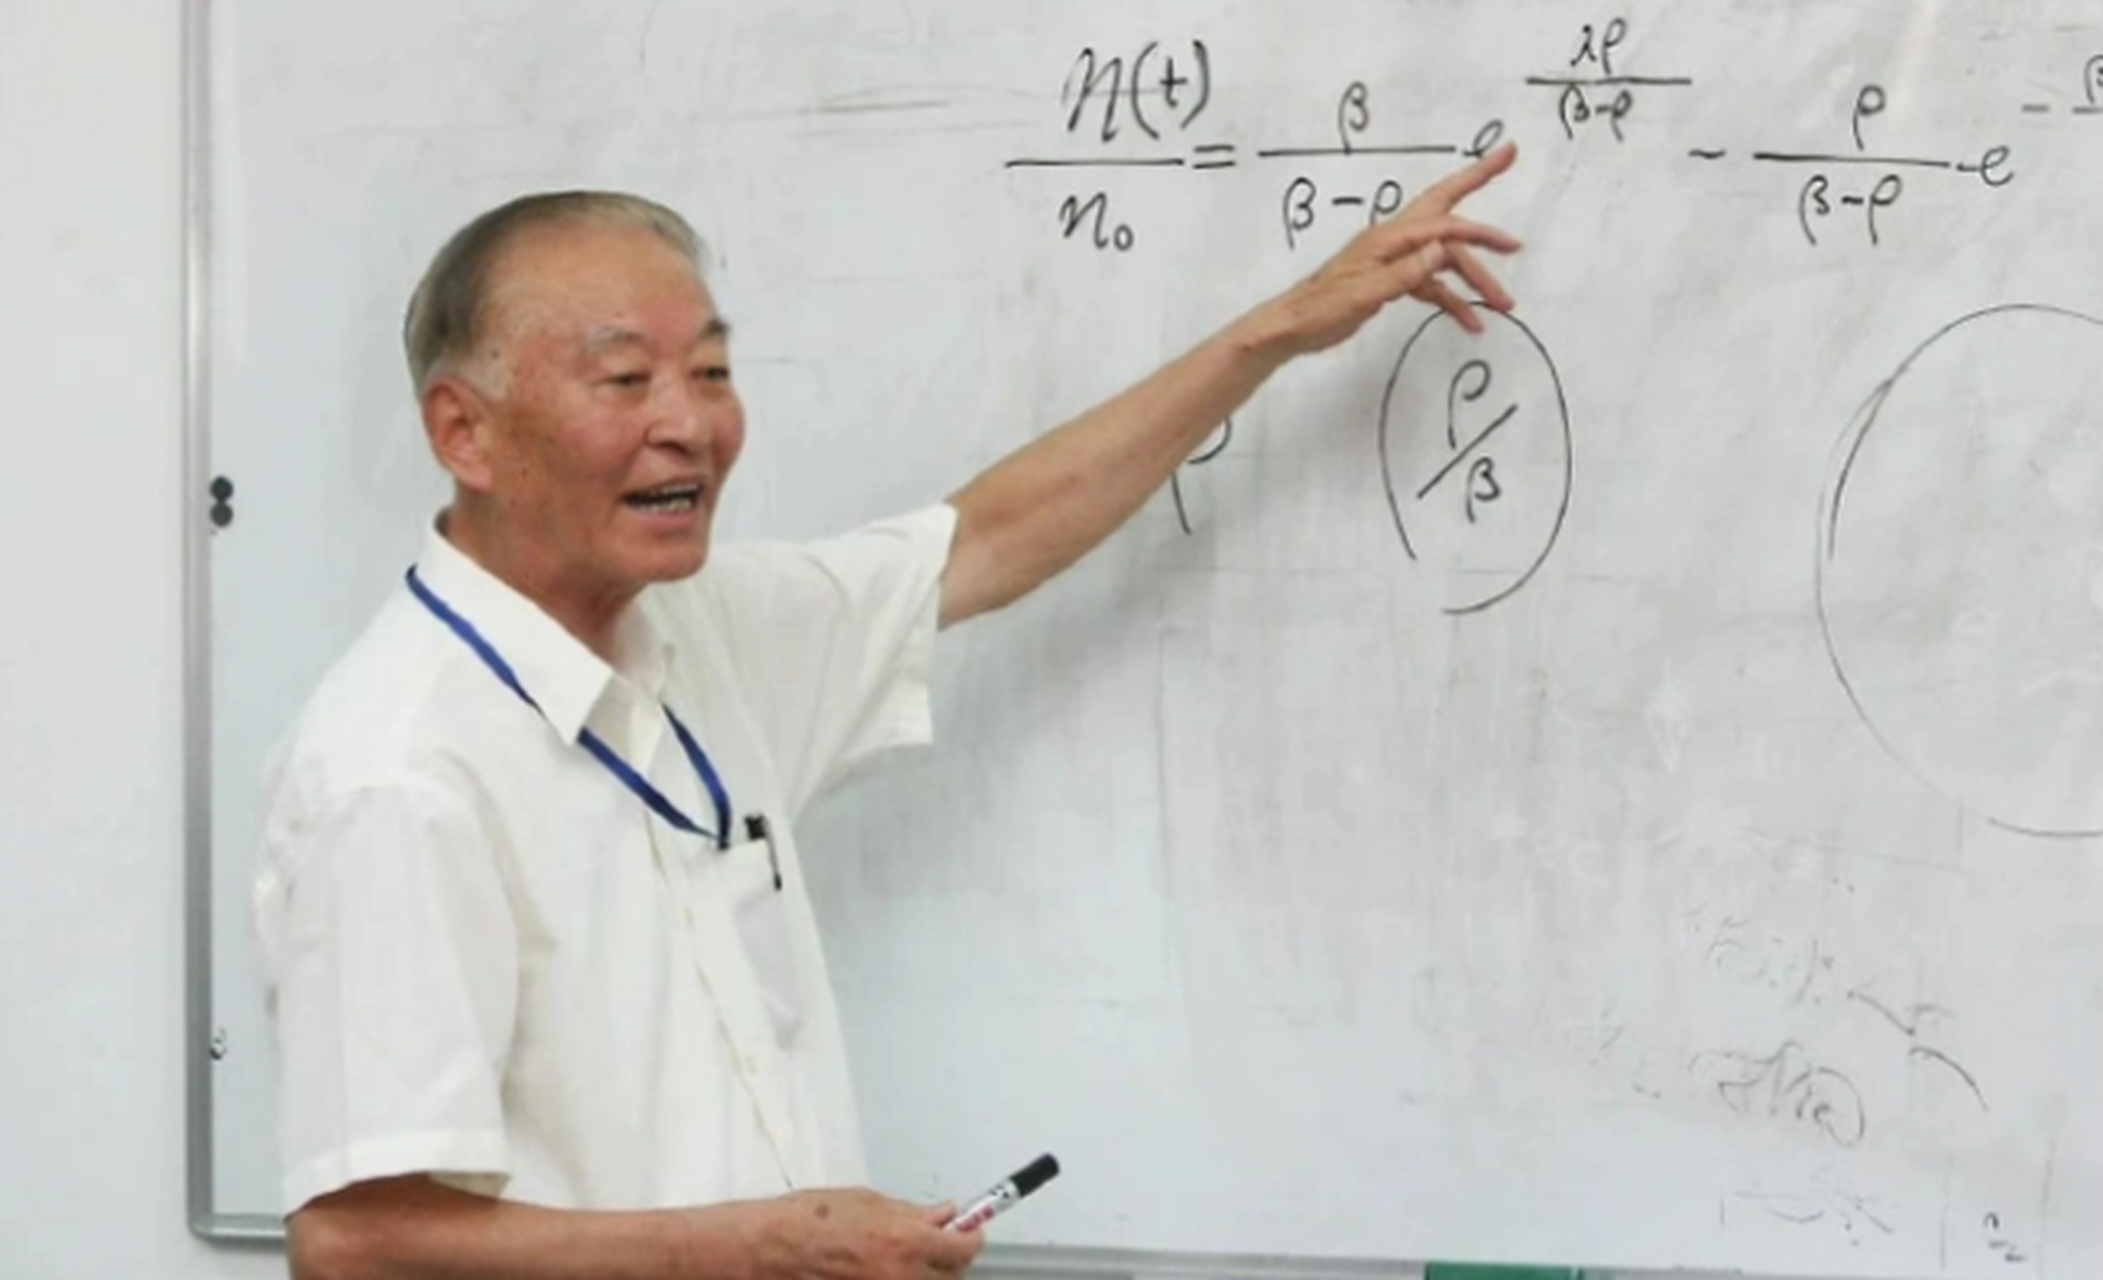 n(t)/n₀ = β/(β-ρ) e^(λρ/(β-ρ)) - ρ/(β-ρ) e^(-β
ρ
ρ/β